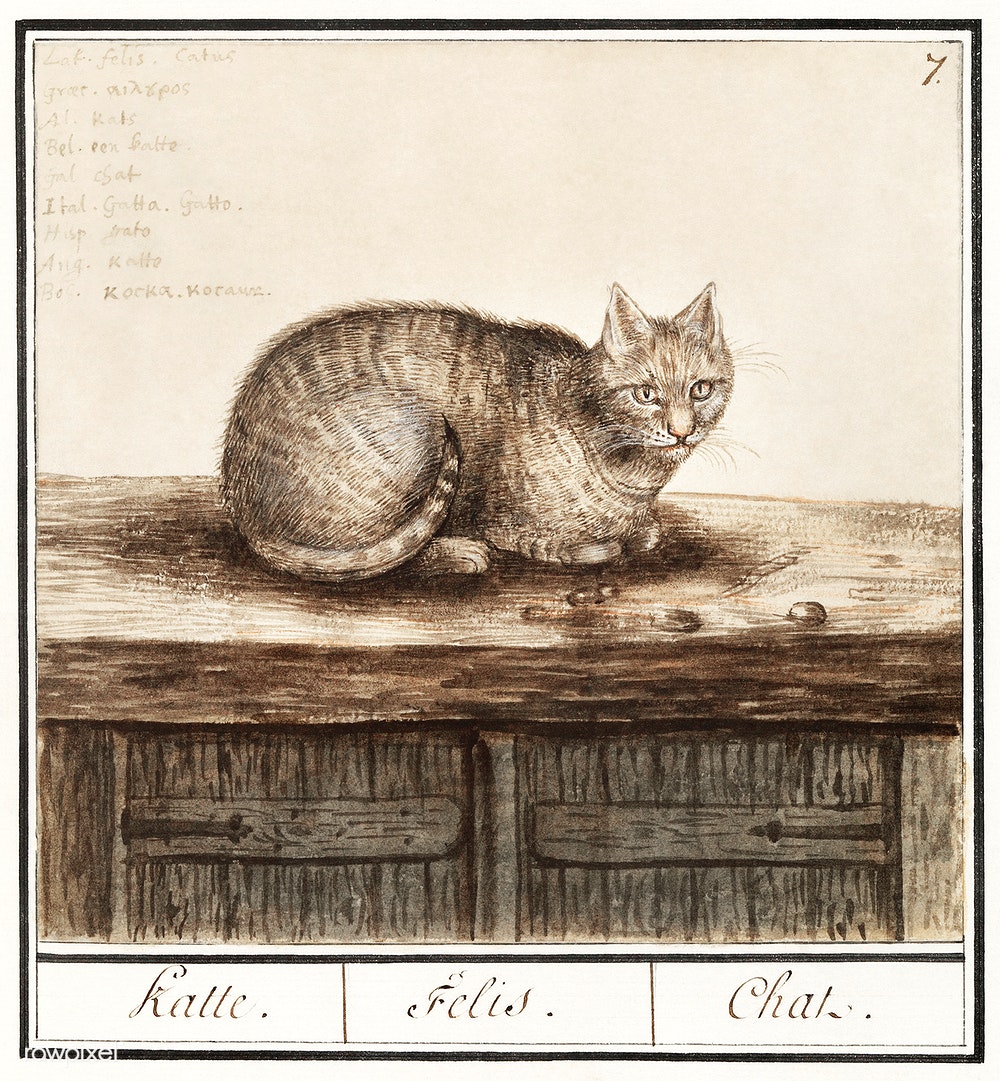 Lat. felis. Catus
7.
Græc. αιλȣρος
Al. Kats
Bel. een katte.
Gal chat
Ital. Gatta. Gatto.
Hisp gato
Ang. Katte
Bo. Kocka. Kocaur.
Katte.
Felis.
Chat.
rawpixel